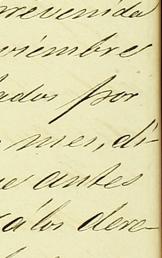 rrevenida
viembre
ados por
mes, di-
e antes
á los dere-